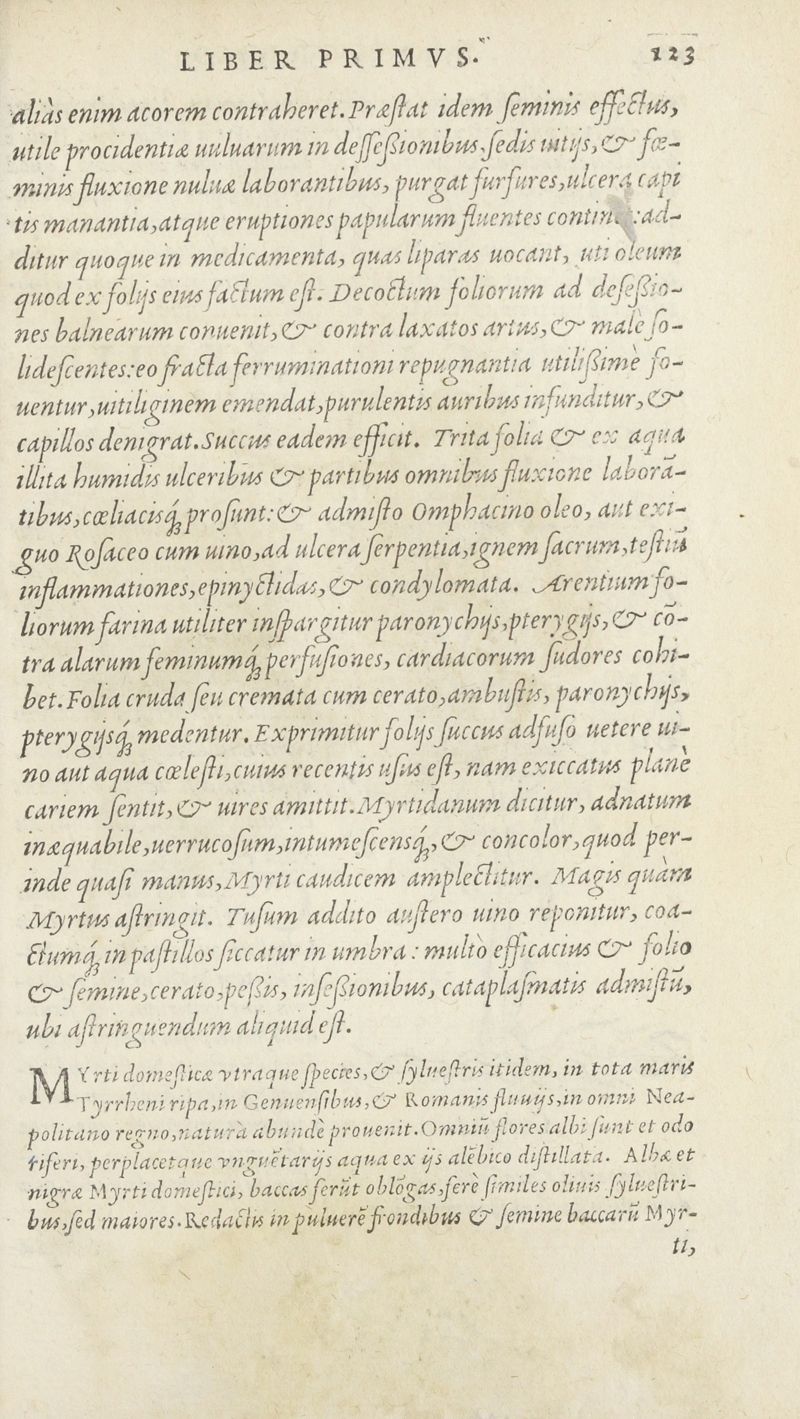 LIBER PRIMVS. 123
aliàs enim acorem contraheret. Præſtat idem ſeminis effectus,
utile procidentiæ uuluarum in deſſeßionibus, ſedis uitijs, & fœ-
minis fluxione uuluæ laborantibus, purgat furfures, ulcera capi
tis manantia, atque eruptiones papularum fluentes : ad-
ditur quoque in medicamenta, quas liparas uocant, uti oleum
quod ex folijs eius factum eſt. Decoctum foliorum ad deſeßio-
nes balnearum conuenit, & contra laxatos artus, & male ſo-
lideſcentes: eo fracta ferruminationi repugnantia utilißime fo-
uentur, uitiliginem emendat, purulentis auribus infunditur, &
capillos denigrat. Succus eadem efficit. Trita folia & ex aqua
illita humidis ulceribus & partibus omnibus fluxione labora-
tibus, cœliacisq́ꝫ proſunt: & admiſto Omphacino oleo, aut exi-
guo Roſaceo cum uino, ad ulcera ſerpentia, ignem ſacrum, teſtiũ
inflammationes, epinyctidas, & condylomata. Arentium fo-
liorum farina utiliter inſpargitur paronychijs, pterygijs, & cō-
tra alarum feminumq́ꝫ perfuſiones, cardiacorum ſudores cohi-
bet. Folia cruda ſeu cremata cum cerato, ambuſtis, paronychijs,
pterygijsq́ꝫ medentur. Exprimitur folijs ſuccus adfuſo uetere ui-
no aut aqua cœleſti, cuius recentis uſus eſt, nam exiccatus planè
cariem ſentit, & uires amittit. Myrtidanum dicitur, adnatum
inæquabile, uerrucoſum, intumeſcensq́ꝫ, & concolor, quod per-
inde quaſi manus, Myrti caudicem amplectitur. Magis quàm
Myrtus aſtringit. Tuſum addito auſtero uino reponitur, coa-
ctumq́ꝫ in paſtillos ſiccatur in umbra : multò efficacius & folio
& ſemine, cerato, peßis, inſeßionibus, cataplaſmatis admiſtũ,
ubi aſtringuendum aliquid eſt.
MYrti domeſticæ vtraque ſpecies, & ſylueſtris itidem, in tota maris
Tyrrheni ripa, in Genuenſibus, & Romanis fluuijs, in omni Nea-
politano regno, naturà abundè prouenit. Omniũ flores albi ſunt et odo
riferi, perplacetque vnguẽtarijs aqua ex ijs alẽbico diſtillata. Albæ et
nigræ Myrti domeſtici, baccas ferũt oblōgas, ferè ſimiles oliuis ſylueſtri-
bus, ſed maiores. Redactis in puluerẽ frondibus & ſemine baccarũ Myr-
ti,